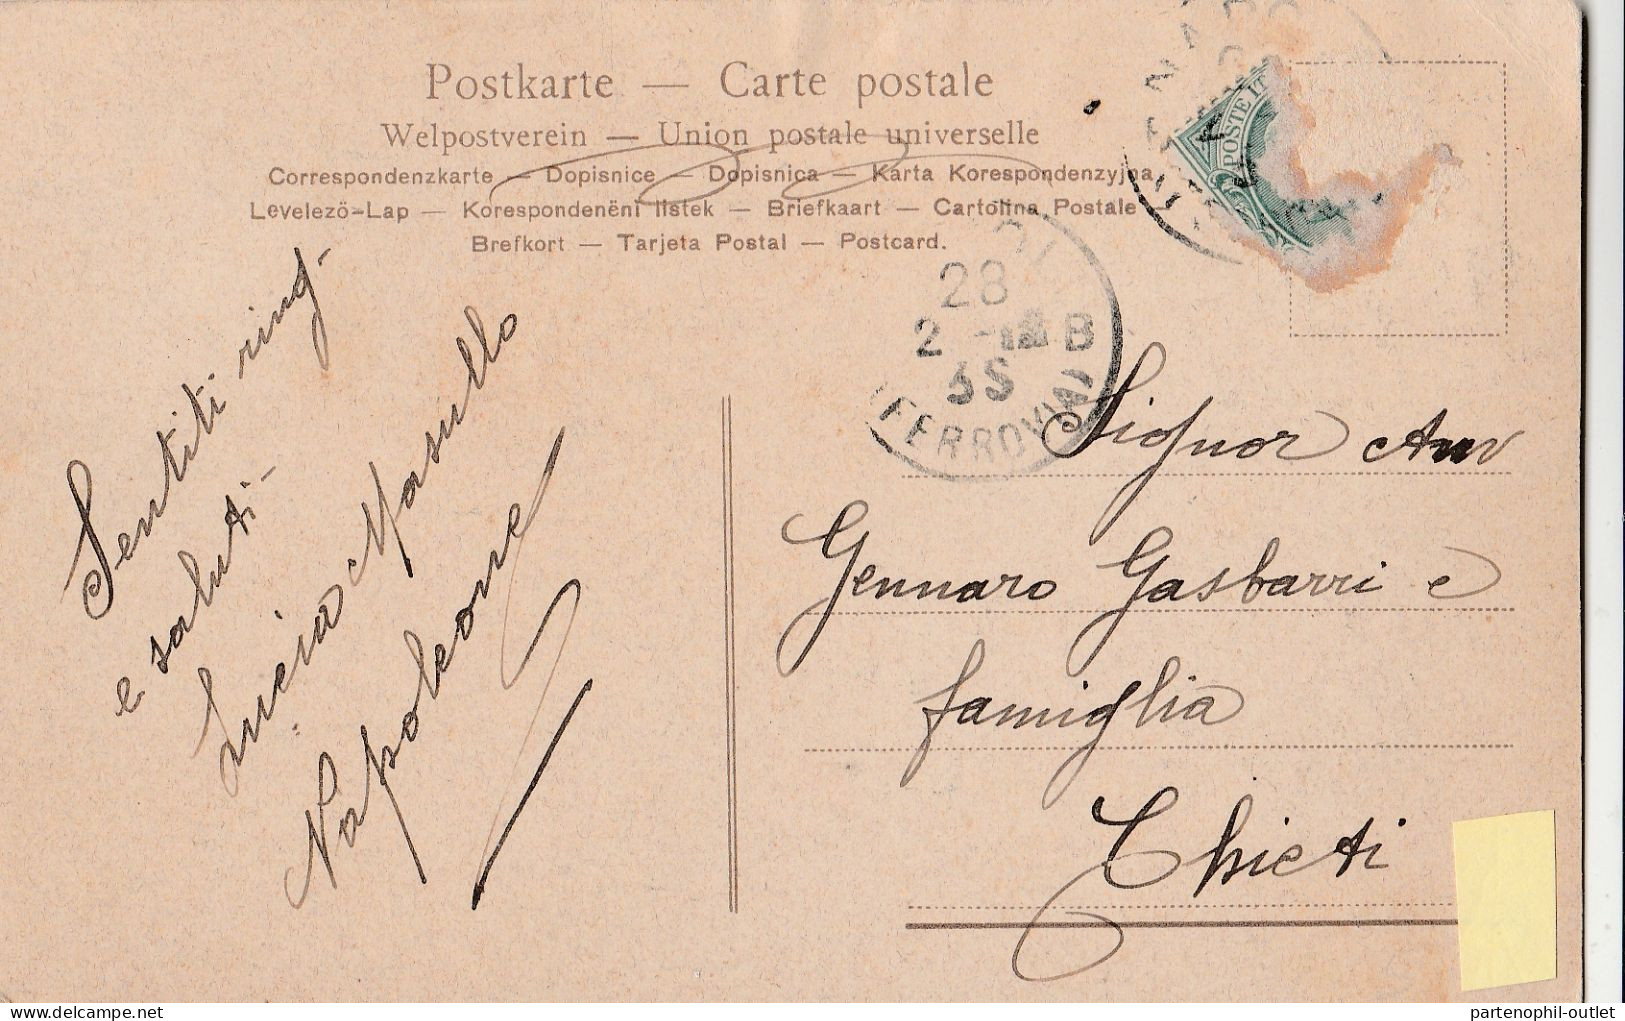 Postkarte — Carte postale
Welpostverein — Union postale universelle
Correspondenzkarte — Dopisnice — Dopisnica — Karta Korespondenzyjna
Levelező-Lap — Korespondenèni listek — Briefkaart — Cartolina Postale
Brefkort — Tarjeta Postal — Postcard.
POSTE IT
28
2
B
(FERROVIA)
Sentiti ring-
e saluti-
Lucia Masullo
Napoleone
Signor Avv
Gennaro Gasbarri e
famiglia
Chieti
partenophil-outlet